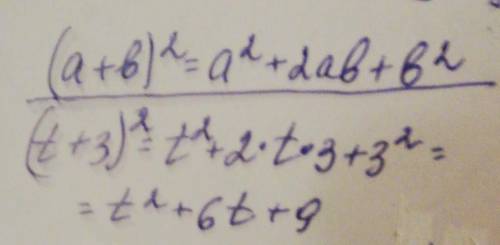 (a+b)²=a²+2ab+b²
(t+3)²=t²+2·t·3+3²=
=t²+6t+9